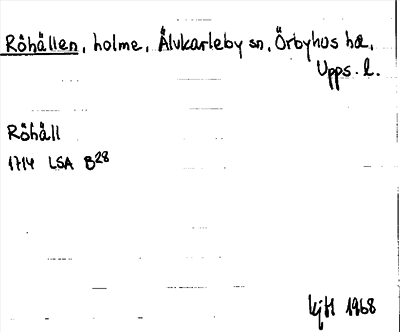 Röhällen, holme, Älvkarleby sn, Örbyhus hd,
Upps. l.
Röhäll
1714 LSA B28
1968